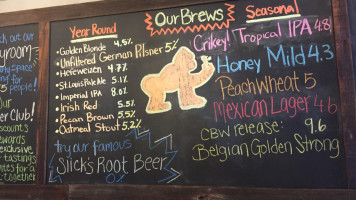 Our Brews
Year Round
Golden Blonde 4.5%
Unfiltered German Pilsner 5%
Hefeweizen 4.7%
St. Louis Pale Ale 5.1
Imperial IPA 8.0
Irish Red 5.5
Pecan Brown 5.5%
Oatmeal Stout 5.2%
try our famous
Slick's Root Beer
Seasonal
Crikey! Tropical IPA 4.8
Honey Mild 4.3
Peach Wheat 5
Mexican Lager 4.6
CBW release: 9.6
Belgian Golden Strong
eck out our
room
space
for
er Club!
scounts
wards
exclusive
tastings
together